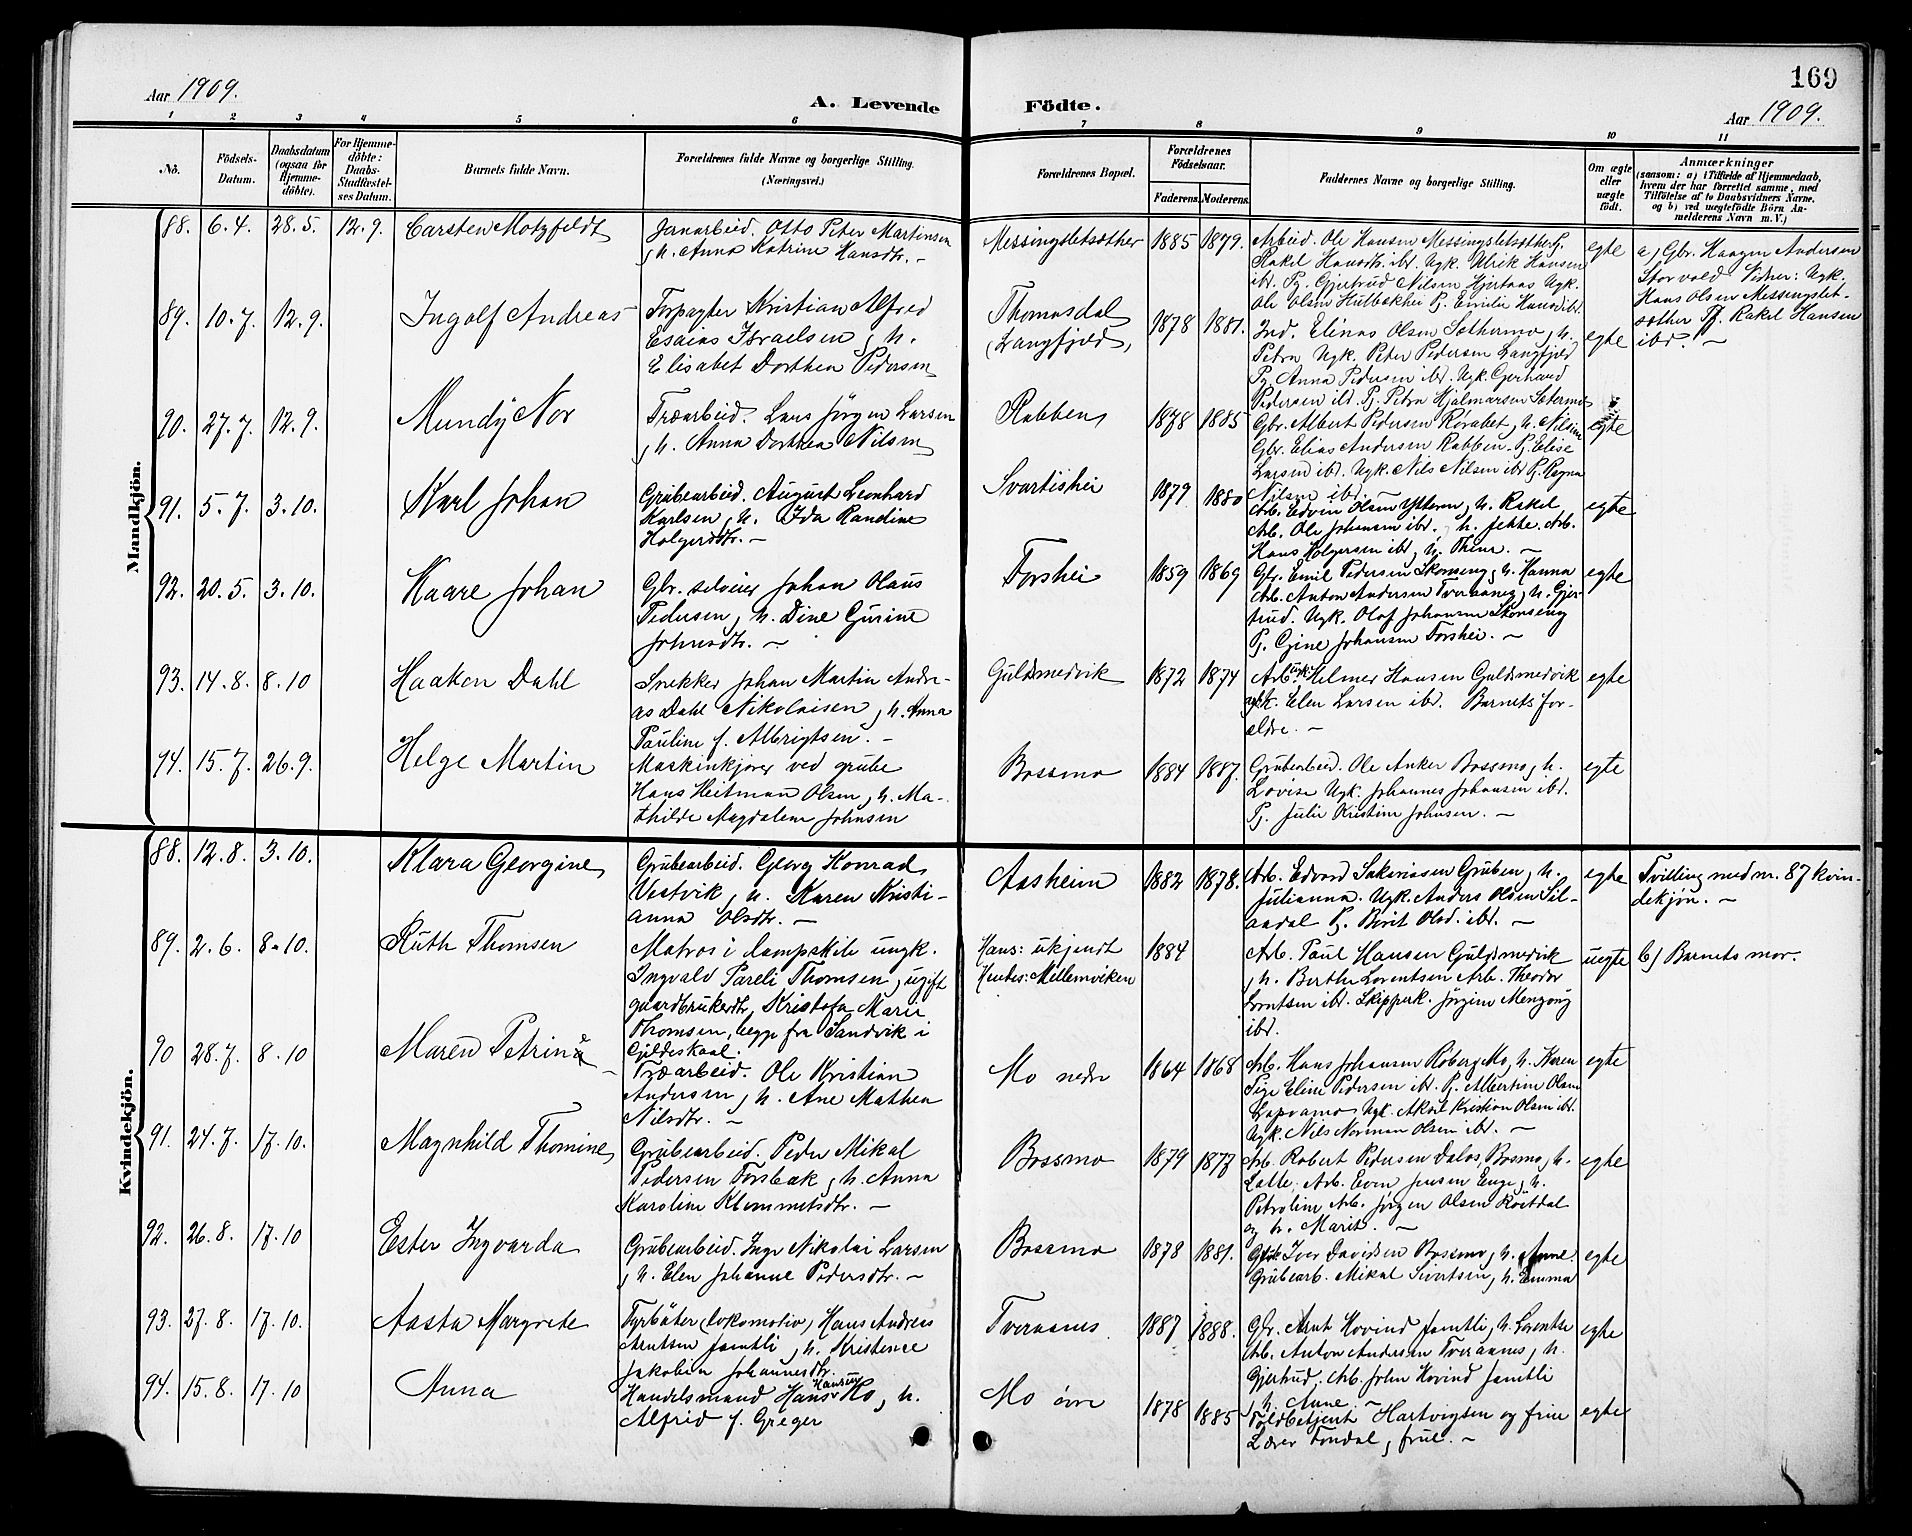 169
Aar 1909.
A. Levende Födte.
Aar 1909.
1 2 3 4 5 6 7 8 9 10 11
No.
Födsels-
Datum.
Daabsdatum
(ogsaa for
Hjemme-
döbte).
For Hjemme-
döbte:
Daabs-
Stadfæstel-
ses Datum.
Barnets fulde Navn.
Forældrenes fulde Navne og borgerlige Stilling.
(Næringsvei.)
Forældrenes Bopæl.
Forældrenes
Födselsaar.
Faderens.
Moderens.
Faddernes Navne og borgerlige Stilling.
Om ægte
eller
uægte
födt.
Anmærkninger
(saasom: a) i Tilfælde af Hjemmedaab,
hvem der har forrettet samme, med
Tilföielse af to Daabsvidners Navne,
og b) ved uægtefödte Börn An-
melderens Navn m. V.)
Mandkjön.
88. 6.4. 28.5. 12.9. Carsten Motzfeldt
Janarbeid. Otto Peter Martinsen
, h. Anna Katrine Hansdtr. –
Messingsletsæther 1885 1879.
Arbeid. Ole Hansen Messingsletsæther, h.
Rakel Hansdtr. ibd. Ugk. Ulrik Hansen
ibd. Pg. Gjertrud Nilsen Hjertaas Ugk.
Ole Olsen Hulbækhei Pg. Emilie Hansen ibd.
egte
a) Gbr. Haagen Andersen
Storvold Vidner: Ugk.
Hans Olsen Messingslet-
sæther Pg. Rakel Hansen
ibd. –
89. 10.7. 12.9. Ingolf Andreas
Forpagter Kristian Alfred
Esaias Israelsen, h.
Elisabet Dorthea Pedersen
Thomasdal
(Langfjeld)
1878 1881.
Ind. Elinas Olsen Sæthermo, h.
Petra Ugk. Peter Pedersen Langfjeld
Pg. Anna Pedersen ibd. Ugk. Gerhard
Pedersen ibd. Pg. Petra Hjalmarsen Sætermo
egte
90. 27.7. 12.9. Mundy Nor
Træarbeid. Lars Jörgen Larsen
, h. Anna Dorthea Nilsen
Rabben 1878 1885
Gbr. Albert Pedersen Röråbet, h. Nilsine
Gbr. Elias Andersen Rabben. Pg. Elise
Larsen ibd. Ugk. Nils Nilsen ibd Pg. Ragna
Nilsen ibd.
egte
91. 5.7. 3.10. Karl Johan
Grubearbeid. August Leonhard
Karlsen, h. Ida Randine
Holgersdtr. –
Svartishei 1879 1880
Arb. Edvin Olsen Ytteren, h. Rakel
Arb. Ole Johansen ibd. h. Jekke. Arb.
Hans Holgersen ibd, h. Thina. –
egte
92. 20.5. 3.10. Kaare Johan
Gbr. selveier Johan Olaus
Pedersen, h. Dine Gurine
Johnsdtr. –
Forshei 1859 1869
Gbr. Emil Pedersen Skonseng, h. Hanna
Arb. Anton Andersen Tveraanes, h. Gjer-
trud. Ugk. Olaf Johansen Skonseng
Pg. Gine Johansen Forshei. –
egte
93. 14.8. 8.10 Haakon Dahl
Snekker Johan Martin Andre-
as Dahl Nikolaisen, h. Anna
Pauline f. Albrigtsen. –
Guldsmedvik 1872 1874
Arb. Helmer Hansen Guldsmedvik
Elen Larsen ibd. Barnets for-
ældre. –
egte
94. 15.7. 26.9. Helge Martin
Maskinkjører ved grube
Hans Heitman Olsen, h. Ma-
thilde Magdalena Johnsen
Bossmo 1884 1887.
Grubearbeid. Ole Anker Bossmo, h.
Lovise Ugk. Johannes Johansen ibd.
Pg. Julie Kristine Johnsen. –
egte
Kvindekjön.
88. 12.8. 3.10. Klara Georgine
Grubearbeid. Georg Konrad
Vestvik, h. Karen Kristi-
anna Olsdtr. –
Aasheim 1882 1878.
Arb. Edvard Sakariasen Gruben, h.
Julianna. Ugk. Anders Olsen Sil-
aadal Pg. Berit Olsd. ibd. –
egte
Tvilling med nr. 87 kvin-
dekjön. –
89. 2.6. 8.10. Ruth Thomsen
Matros i dampskib ungk.
Ingvald Pareli Thomsen, ugift
gaardbrukerdtr, Kristofa Marie
Thomsen, begge fra Sandvik i
Gildeskaal.
Hans: ukjendt
Hendes: Mellemviken
1884
Arb. Paul Hansen Guldsmedvik
, h. Berthe Lorentsen Arb. Theodor
Lorntsen ibd. Skipperk. Jörgine Menzong
ibd.
uegte
b) Barnets mor.
90 28.7. 8.10 Maren Petrine
Træarbeid. Ole Kristian
Andersen, h. Ane Mathea
Nilsdtr. –
Mo nedre 1864 1868
Arb. Hans Johansen Röberg Mo, h. Karen
Pige Eline Pedersen ibd. Pg. Albertine Olsen
Lapvamo Ugk. Aksel Kristian Olsen ibd.
Ugk. Nils Norman Olsen ibd. –
egte
91. 24.7. 17.10. Magnhild Thomine
Grubearbeid. Peder Mikal
Pedersen Forsbak, h. Anna
Karoline Klemmetsdtr. –
Bossmo 1879 1877
Arb. Robert Pedersen Dalos, Bosmo, h.
Lalle. Arb. Even Jensen Enge, h.
Petroline Arb. Jörgen Olsen Röitdal
og h. Marit. –
egte
92. 26.8. 17.10 Ester Ingvarda
Grubearbeid. Inge Nikolai Larsen
, h. Elen Johanne Pedersdtr. –
Bossmo 1878 1881.
Iver Davidsen Bossmo, h. Anne
Grubearb. Mikal Sivertsen, h. Emma
egte
93. 27.8. 17.10. Aasta Margrete
Fyrböter (lokomotiv) Hans Andreas
Arntsen Jamtli, h. Kristence
Jakobine Johannesdtr.
Tveraanes 1887 1888.
Gbr. Arnt Hovind Jamtli, h. Lorentse
Arb. Anton Andersen Tveraanes, h.
Gjertrud. Arb. John Hovind Jamtli
, h. Anne. –
egte
94. 15.8. 17.10 Anna
Handelsmand Hans Hansen Mo, h.
Alfrid f. Greger
Mo övre 1878 1885
Toldbetjent Hartvigsen og frue
Lærer Fondal, frue. –
egte